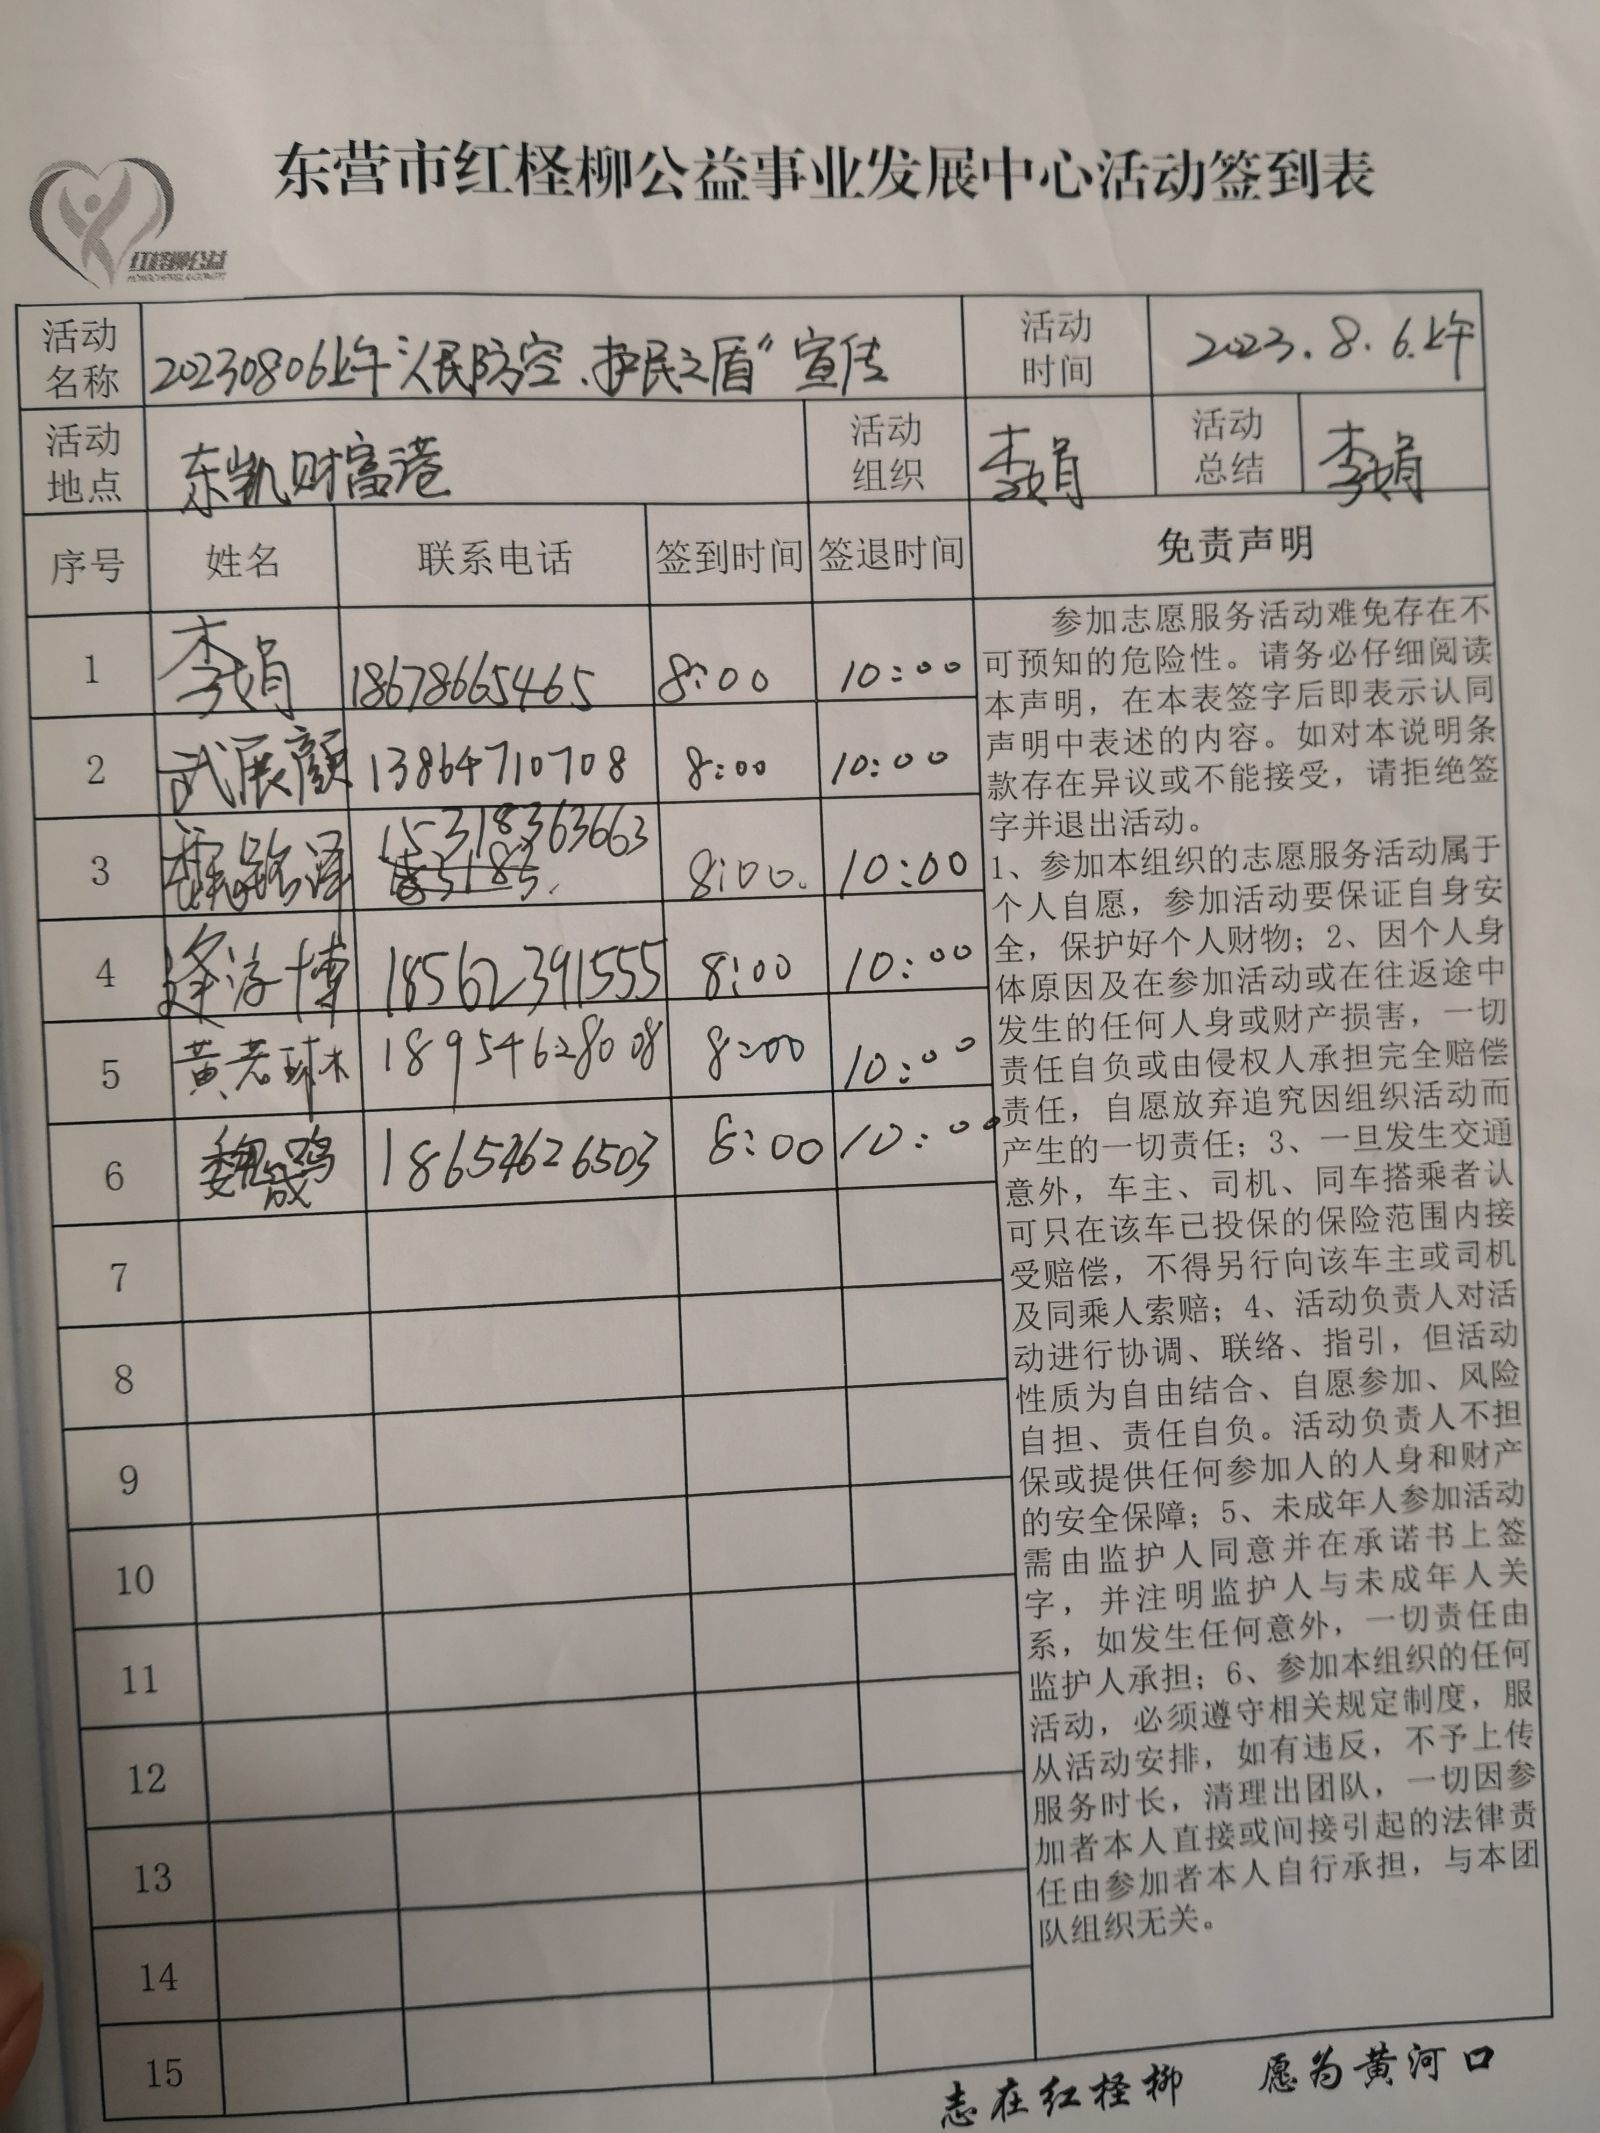 东营市红柽柳公益事业发展中心活动签到表
红柽柳公益
活动名称 20230806上午“人民防空、护民之盾”宣传 活动时间 2023.8.6.上午
活动地点 东凯财富港 活动组织 李娟 活动总结 李娟
序号 姓名 联系电话 签到时间 签退时间 免责声明
1 李娟 18678665465 8:00 10:00
2 武展颜 13864710708 8:00 10:00
3 魏铭泽 15318363663 8:00. 10:00
4 逄 博 18562391555 8:00 10:00
5 黄 18954628008 8:00 10:00
6 魏晟鸣 18654626503 8:00 10:00
7
8
9
10
11
12
13
14
15
参加志愿服务活动难免存在不
可预知的危险性。请务必仔细阅读
本声明，在本表签字后即表示认同
声明中表述的内容。如对本说明条
款存在异议或不能接受，请拒绝签
字并退出活动。
1、参加本组织的志愿服务活动属于
个人自愿，参加活动要保证自身安
全，保护好个人财物；2、因个人身
体原因及在参加活动或在往返途中
发生的任何人身或财产损害，一切
责任自负或由侵权人承担完全赔偿
责任，自愿放弃追究因组织活动而
产生的一切责任；3、一旦发生交通
意外，车主、司机、同车搭乘者认
可只在该车已投保的保险范围内接
受赔偿，不得另行向该车主或司机
及同乘人索赔；4、活动负责人对活
动进行协调、联络、指引，但活动
性质为自由结合、自愿参加、风险
自担、责任自负。活动负责人不担
保或提供任何参加人的人身和财产
的安全保障；5、未成年人参加活动
需由监护人同意并在承诺书上签
字，并注明监护人与未成年人关
系，如发生任何意外，一切责任由
监护人承担；6、参加本组织的任何
活动，必须遵守相关规定制度，服
从活动安排，如有违反，不予上传
服务时长，清理出团队，一切因参
加者本人直接或间接引起的法律责
任由参加者本人自行承担，与本团
队组织无关。
志在红柽柳 愿为黄河口